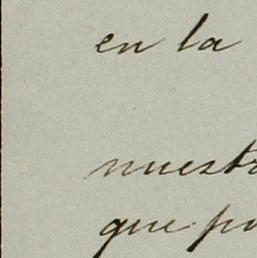 en la
nuestr
que po